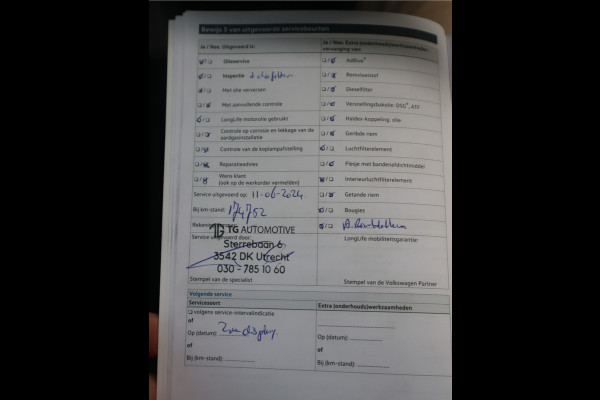 Bewijs 5 van uitgevoerde servicebeurten
Ja / Nee, Uitgevoerd is:
Olieservice
Inspectie
Met olie verversen
Met aanvullende controle
LongLife motorolie gebruikt
Controle op corrosie en lekkage van de aardgasinstallatie
Controle van de koplampafstelling
Reparatieadvies
Wens klant
(ook op de werkorder vermelden)
Service uitgevoerd op: 11-06-2024
Bij km-stand: 174752
TG AUTOMOTIVE
Service uitgevoerd door:
Sterrebaan 6
3542 DK Utrecht
030 - 785 10 60
Stempel van de specialist
Ja / Nee, Extra (onderhouds)werkzaamheden,
vervanging van:
AdBlue®
Remvloeistof
Dieselfilter
Versnellingsbakolie: DSG®, ATF
Haldex-koppeling: olie
Geribde riem
Luchtfilterelement
Flesje met bandenafdichtmiddel
Interieurluchtfilterelement
Getande riem
Bougies
LongLife mobiliteitsgarantie:
Stempel van de Volkswagen Partner
Volgende service
Servicesoort
volgens service-intervalindicatie
of
Op (datum): Zie display.
of
Bij (km-stand):
Extra (onderhouds)werkzaamheden
Op (datum):
of
Bij (km-stand):